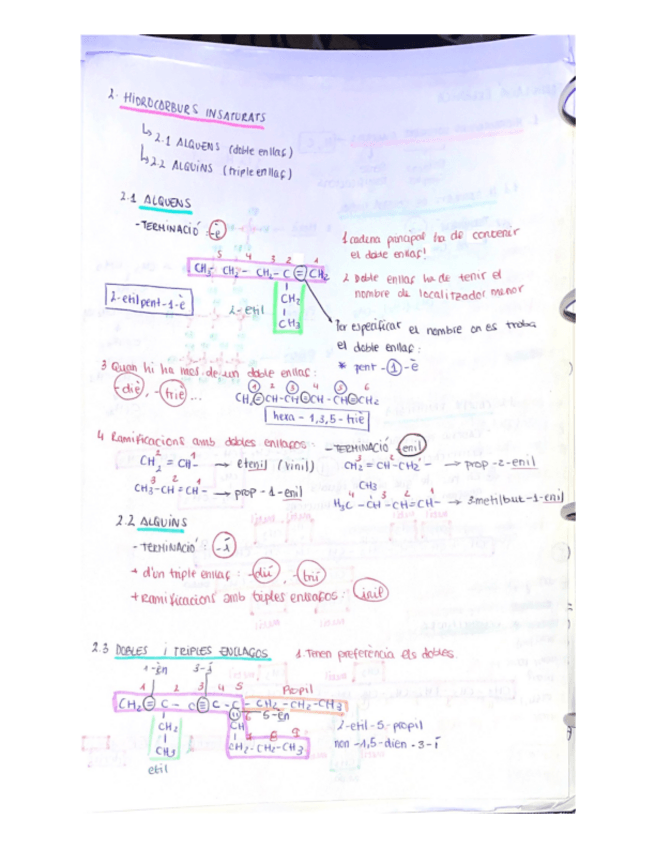 2. HIDROCARBURS INSATURATS
↳ 2.1 ALQUENS (doble enllaç)
↳ 2.2 ALQUINS (triple enllaç)
2.1 ALQUENS
- TERMINACIÓ -è
5 4 3 2 1
CH3 - CH2 - CH2 - C = CH2
CH2
CH3
2-etil
2-etilpent-1-è
1 cadena principal ha de contenir
el doble enllaç!
2 Doble enllaç ha de tenir el
nombre de localitzador menor
Per especificar el nombre on es troba
el doble enllaç:
* pent - 1 - è
3 Quan hi ha mes de un doble enllaç:
-diè, -triè ...
1 2 3 4 5 6
CH2=CH-CH=CH-CH=CH2
hexa - 1,3,5 - triè
4 Ramificacions amb dobles enllaços: - TERMINACIÓ enil
2 1
CH2 = CH- → etenil (vinil)
3 2 1
CH2 = CH-CH2 - → prop-2-enil
3 2 1
CH3-CH=CH- → prop-1-enil
CH3
4 3 2 1
H3C - CH - CH=CH- → 3metilbut-1-enil
2.2 ALQUINS
- TERMINACIÓ: -í
+ d'un triple enllaç: -dií, -trií
+ Ramificacions amb triples enllaços: inil
2.3 DOBLES i TRIPLES ENLLAÇOS 1. Tenen preferència els dobles.
1-èn 3-í
1 2 3 4 5 Propil
CH2 = C - C ≡ C - C - CH2 - CH2 - CH3
6 5-èn
CH2 CH
7 8 9
CH3 CH2 - CH2 - CH3
etil
2-etil-5-propil
non-1,5-dien-3-í